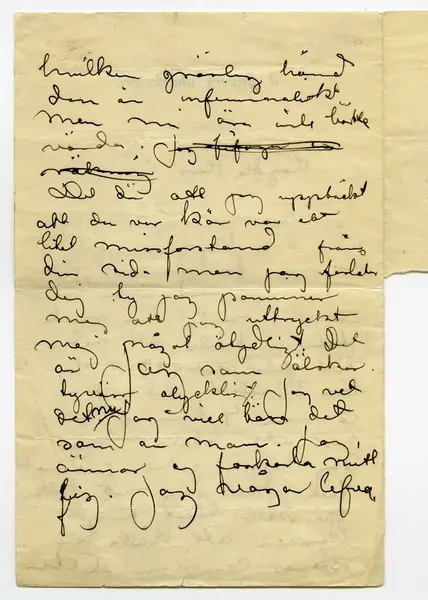 hvilken gräslig hämd
den är infernaliskt
men ni äro inte bättre
värda. Jag
Det där att jag upptäckt
att du var kär var ett
litet missforstand från
din sida men jag forlåter
dig ty jag påminner
mig att jag uttryckt
mig något otydligt. Det
är Jag som älskar.
olyckligt Jag vet
det nu Jag vill bära det
som en man. Jag
ämnar ej forkorta mitt
Jag